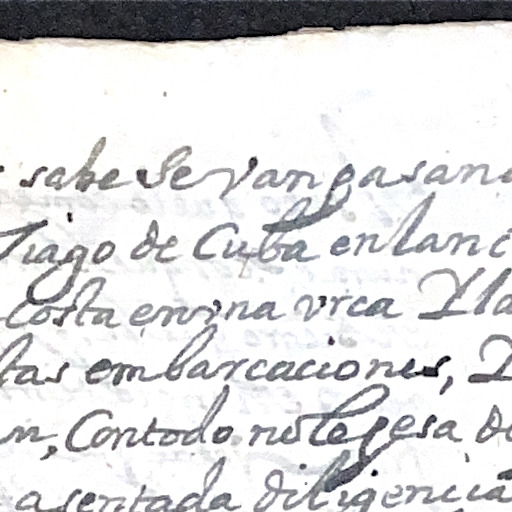 sabe Se van pasan
Tiago de Cuba en lanc
costa en vna vrca Y la
tas embarcaciones, Y
n, Con todo no le pesa de
asentada diligencia